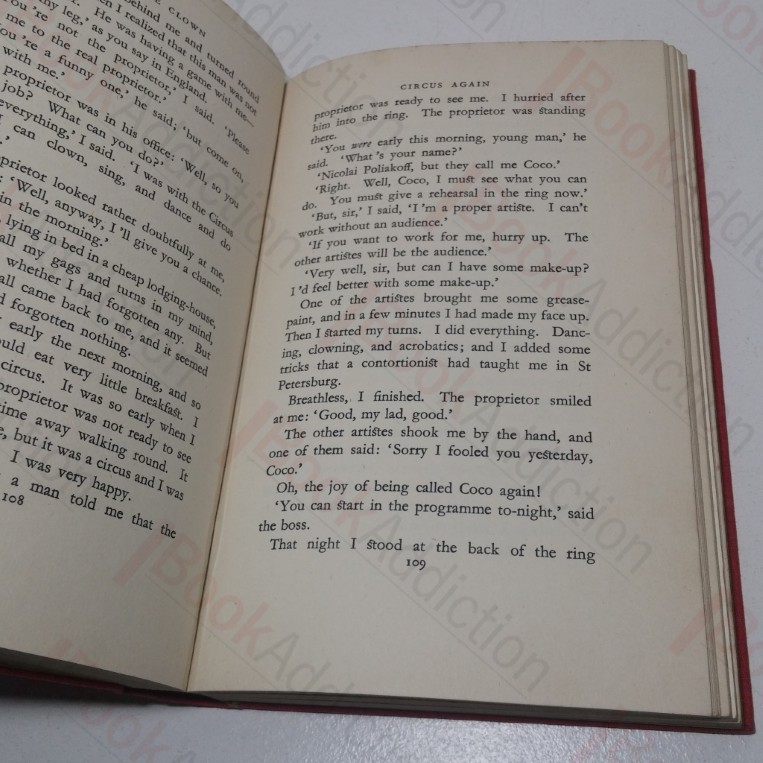 E CLOWN
behind me and turned round
my leg,' as you say in England.
I realized that this man was not
He was having a game with me—
you're not the proprietor,' I said. 'Please
me to the real proprietor.'
You're a funny one,' he said; 'but come on,
with me.'
proprietor was in his office: 'Well, so you
job? What can you do?'
everything,' I said. 'I was with the Circus
I can clown, sing, and dance and do
prietor looked rather doubtfully at me,
: 'Well, anyway, I'll give you a chance.
in the morning.'
lying in bed in a cheap lodging-house,
all my gags and turns in my mind,
whether I had forgotten any. But
all came back to me, and it seemed
forgotten nothing.
early the next morning, and so
ould eat very little breakfast. I
circus. It was so early when I
proprietor was not ready to see
time away walking round. It
, but it was a circus and I was
I was very happy.
a man told me that the
108
CIRCUS AGAIN
proprietor was ready to see me. I hurried after
him into the ring. The proprietor was standing
there.
'You were early this morning, young man,' he
said. 'What's your name?'
'Nicolai Poliakoff, but they call me Coco.'
'Right. Well, Coco, I must see what you can
do. You must give a rehearsal in the ring now.'
'But, sir,' I said, 'I'm a proper artiste. I can't
work without an audience.'
'If you want to work for me, hurry up. The
other artistes will be the audience.'
'Very well, sir, but can I have some make-up?
I'd feel better with some make-up.'
One of the artistes brought me some grease-
paint, and in a few minutes I had made my face up.
Then I started my turns. I did everything. Danc-
ing, clowning, and acrobatics; and I added some
tricks that a contortionist had taught me in St
Petersburg.
Breathless, I finished. The proprietor smiled
at me: 'Good, my lad, good.'
The other artistes shook me by the hand, and
one of them said: 'Sorry I fooled you yesterday,
Coco.'
Oh, the joy of being called Coco again!
'You can start in the programme to-night,' said
the boss.
That night I stood at the back of the ring
109
BookAddiction